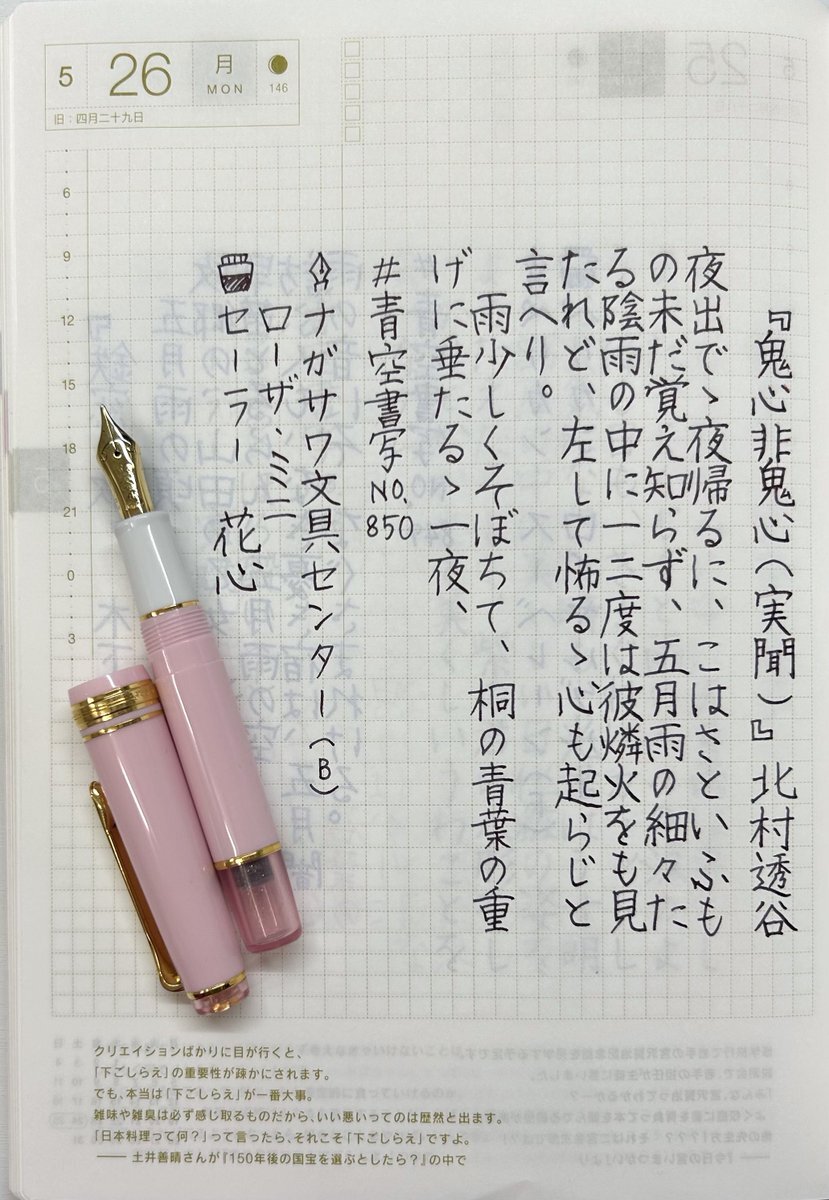 5 26 月 MON 146
旧：四月二十九日
6
9
12
15
18
21
0
3
『鬼心非鬼心（実聞）』北村透谷
夜出でゝ夜帰るに、こはさといふも
の未だ覚え知らず、五月雨の細々た
る陰雨の中に一二度は彼燐火をも見
たれど、左して怖るゝ心も起らじと
言へり。
雨少しくそぼちて、桐の青葉の重
げに垂たるゝ一夜、
#青空書写NO.850
ナガサワ文具センター（B）
ローザ・ミニ
セーラー 花心
クリエイションばかりに目が行くと、
「下ごしらえ」の重要性が疎かにされます。
でも、本当は「下ごしらえ」が一番大事。
雑味や雑臭は必ず感じ取るものだから、いい悪いってのは歴然と出ます。
「日本料理って何？」って言ったら、それこそ「下ごしらえ」ですよ。
—— 土井善晴さんが『150年後の国宝を選ぶとしたら？』の中で